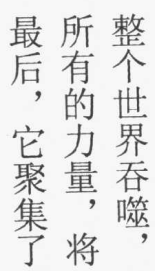 整个世界吞噬，
所有的力量，将
最后，它聚集了